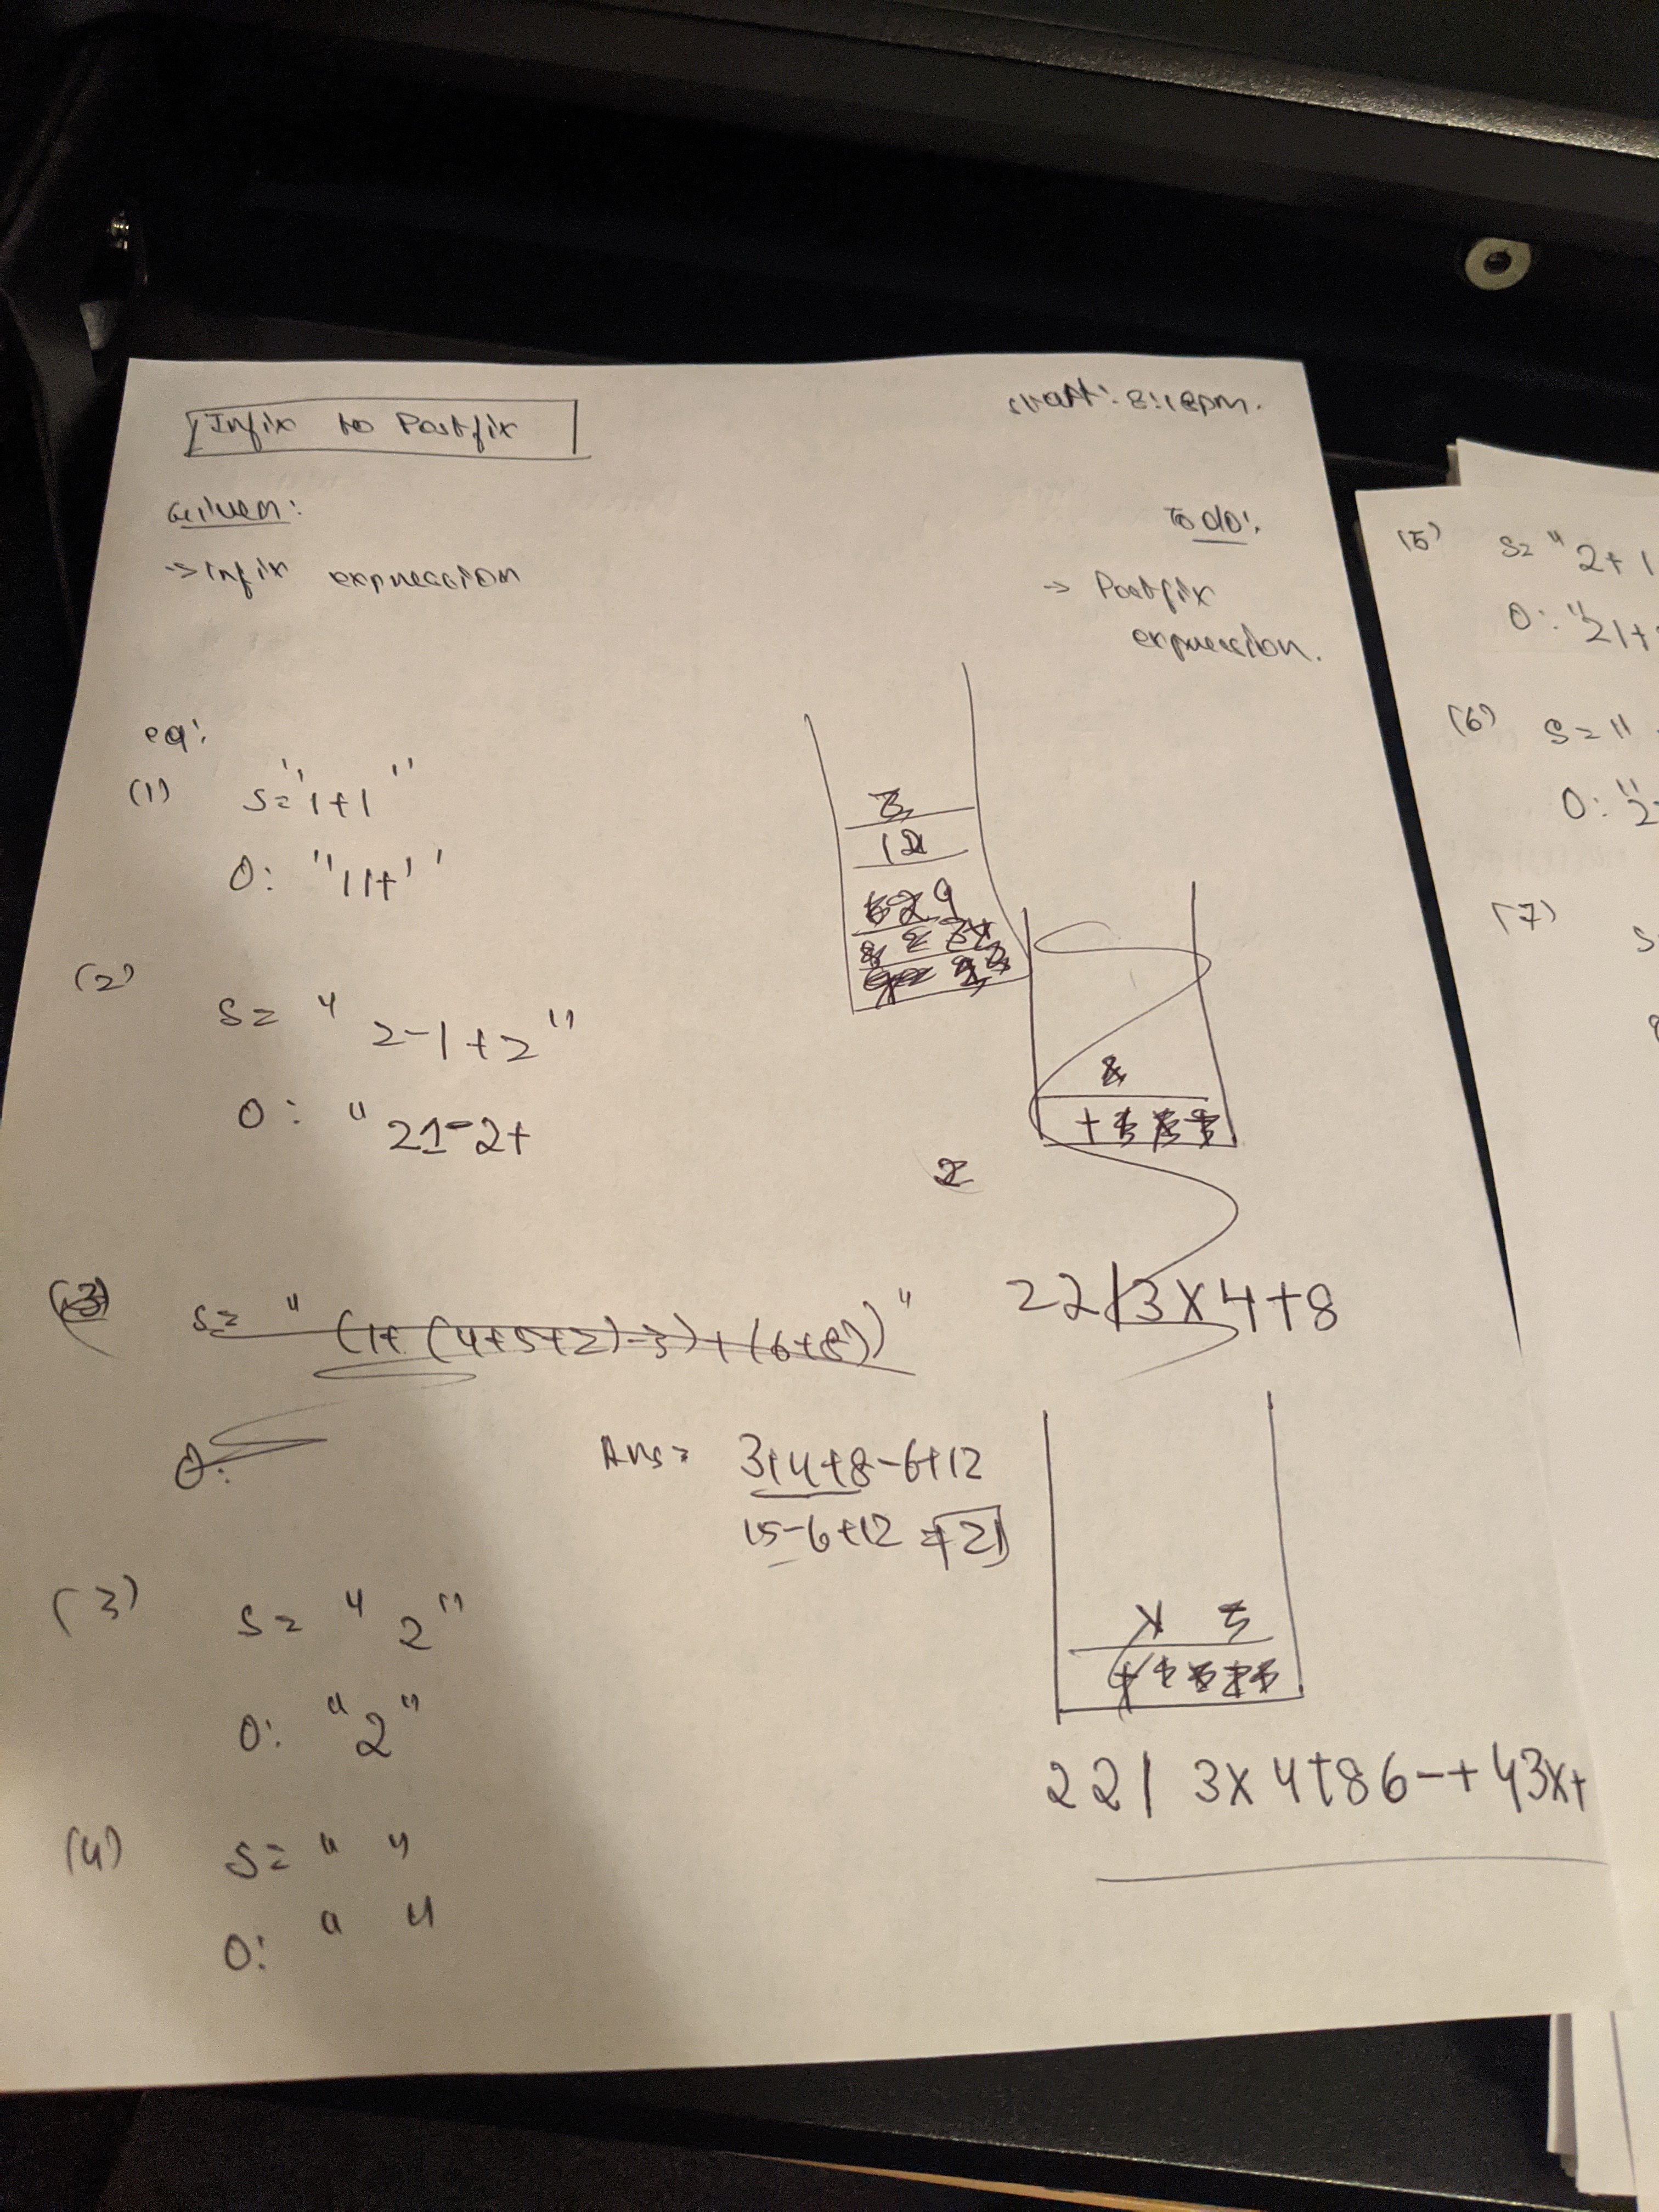 Infix to Postfix
start: 8:18pm.
Given:
To do:
-> Infix expression
-> Postfix
expression.
eg:
(1) s="1+1"
O: "11+"
(2)
s= "2-1+2"
O: "21-2+
3
12
9
+
2
(3) s= "(1+(4+5+2)-3)+(6+8))"
O:
22/3x4+8
Ans= 3+4+8-6+12
15-6+12 = 21
(3) s= "2"
O: "2"
22/ 3x4+86-+43x+
(4) s= " "
O: " "
(5) s= "2+1
O: "21+
(6) s= "
O: "2
(7)
s